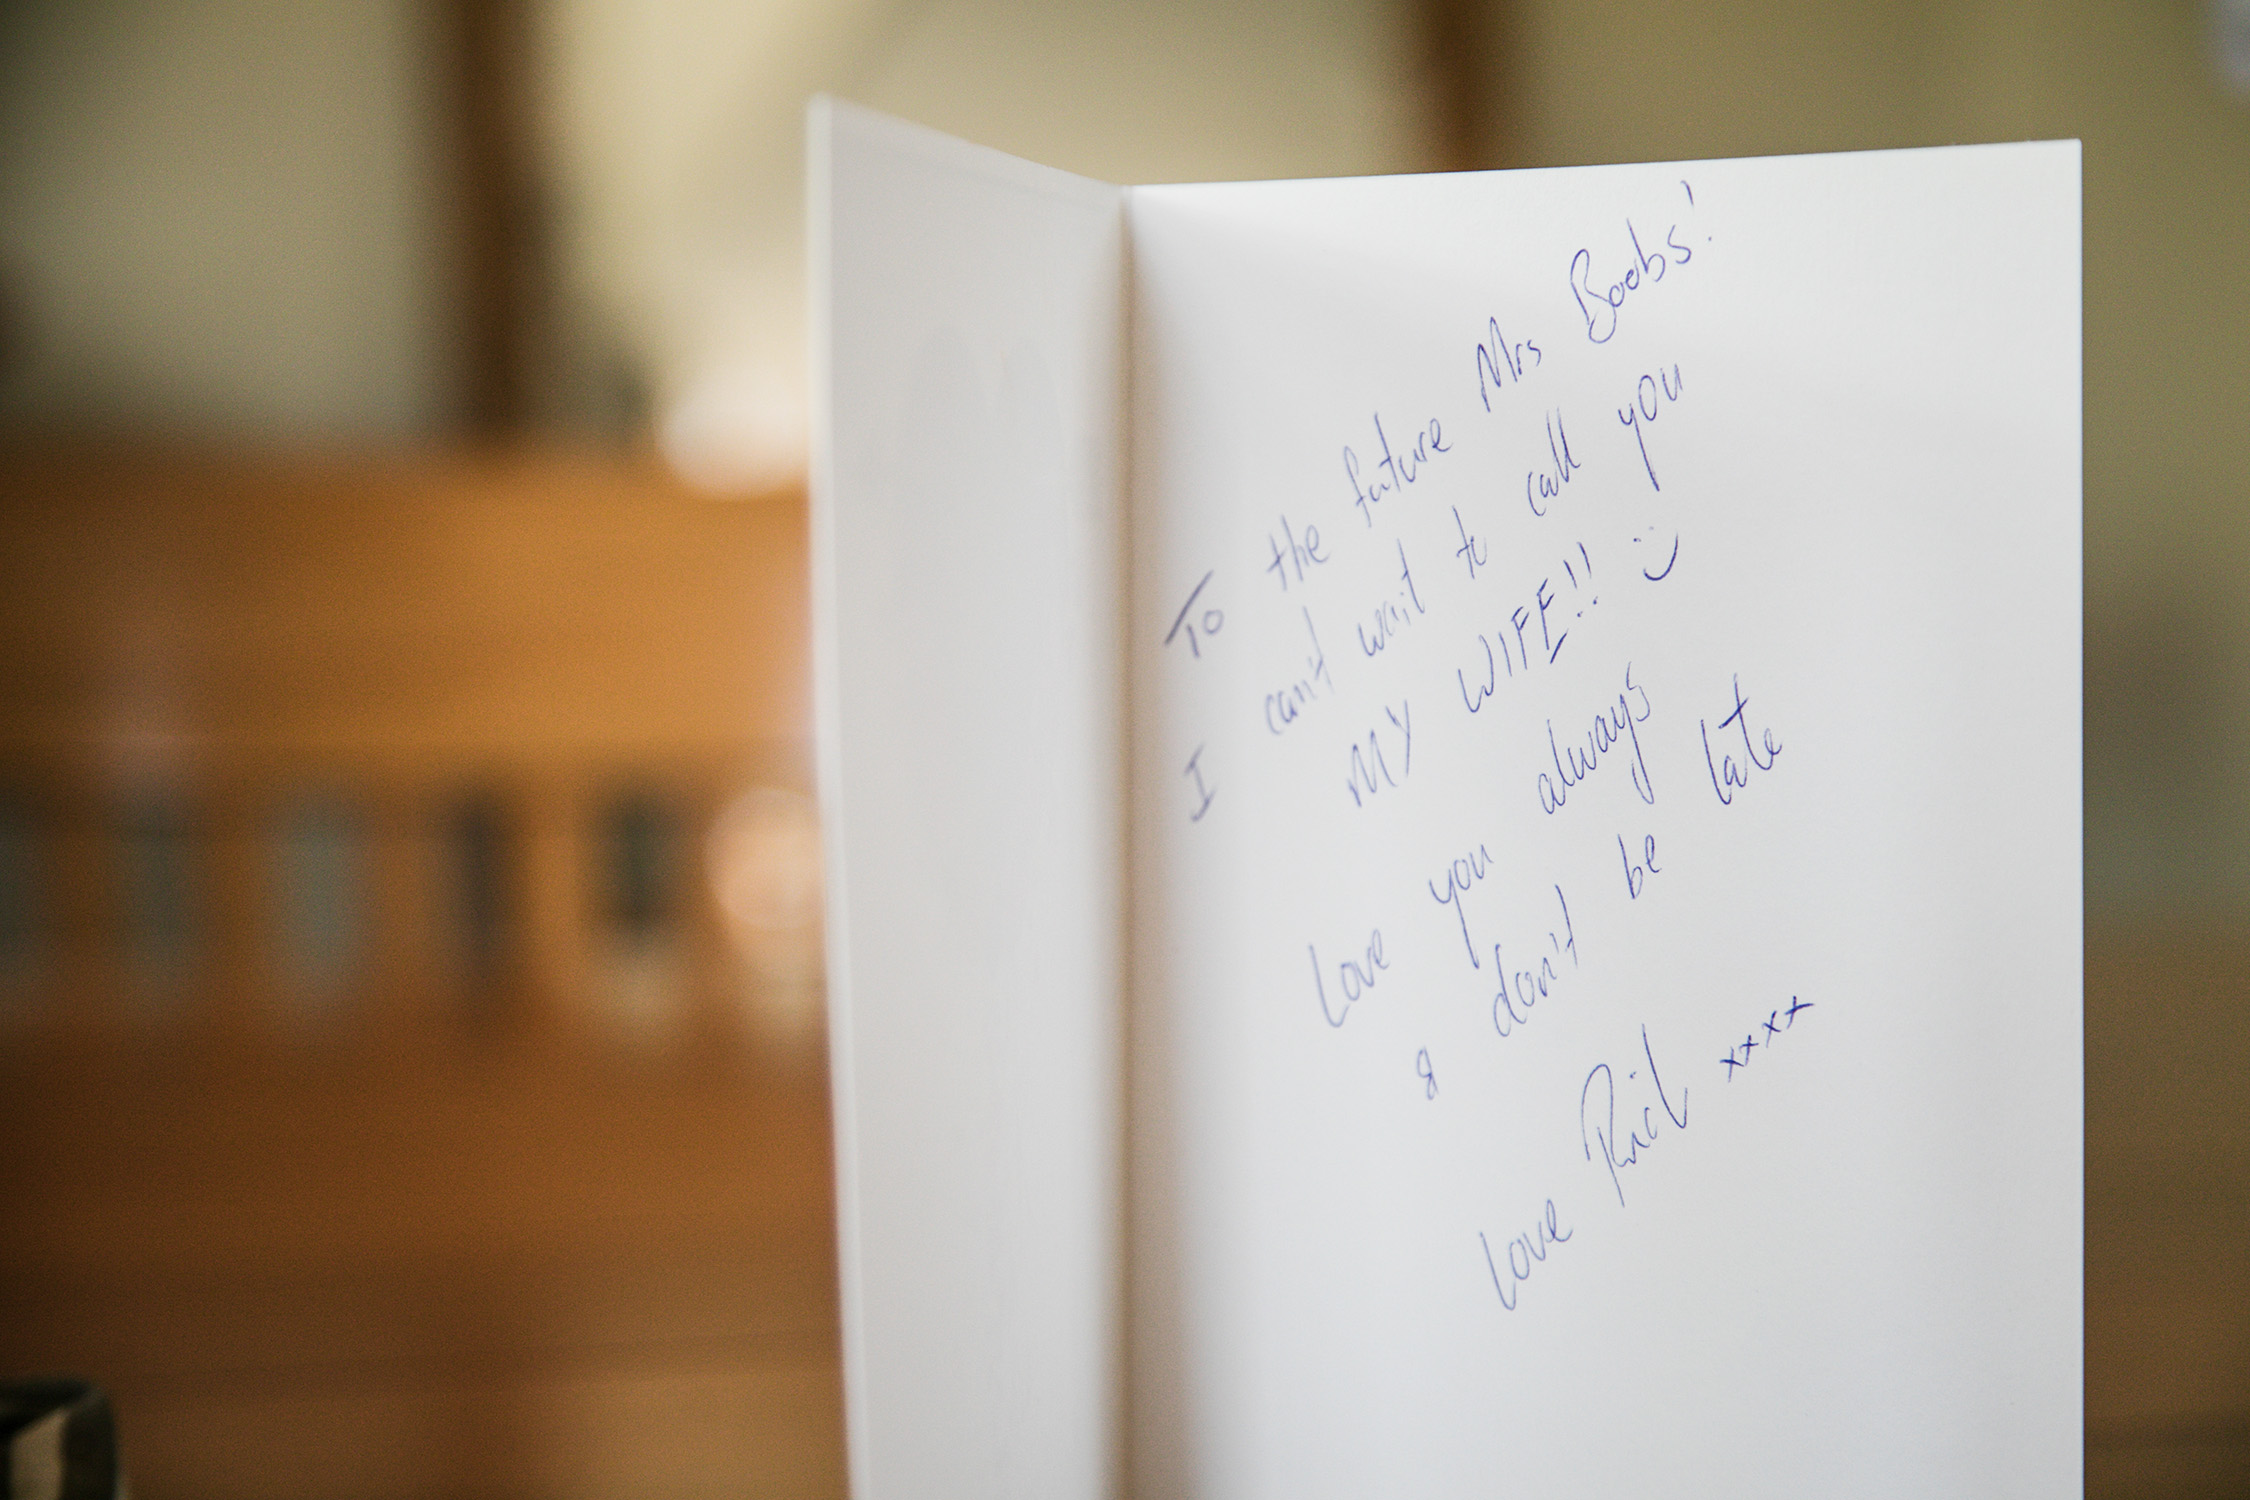 To the future Mrs Boobs!
I can't wait to call you
MY WIFE!! :)
Love you always
& don't be late
Love Rich xxxx